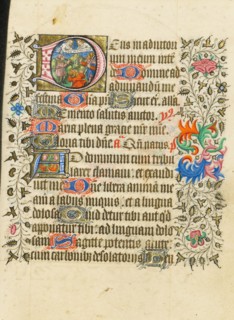 Deus in adiutori
um meum inte
Domine ad
adiuuandu me
festina Gloria pri Sicut er alla
Memento salutis auctor
Maria plena gracie mr mie
Gloria tibi dne
Ad dominum cum tribu
larer clamaui et exaudiuit me
Dne libera anima me
am a labiis iniquis et a lingua
dolosa Quid detur tibi aut qd
apponatur tibi ad linguam dolo
sam Sagitte potentis acute
cum carbonibus desolatoriis